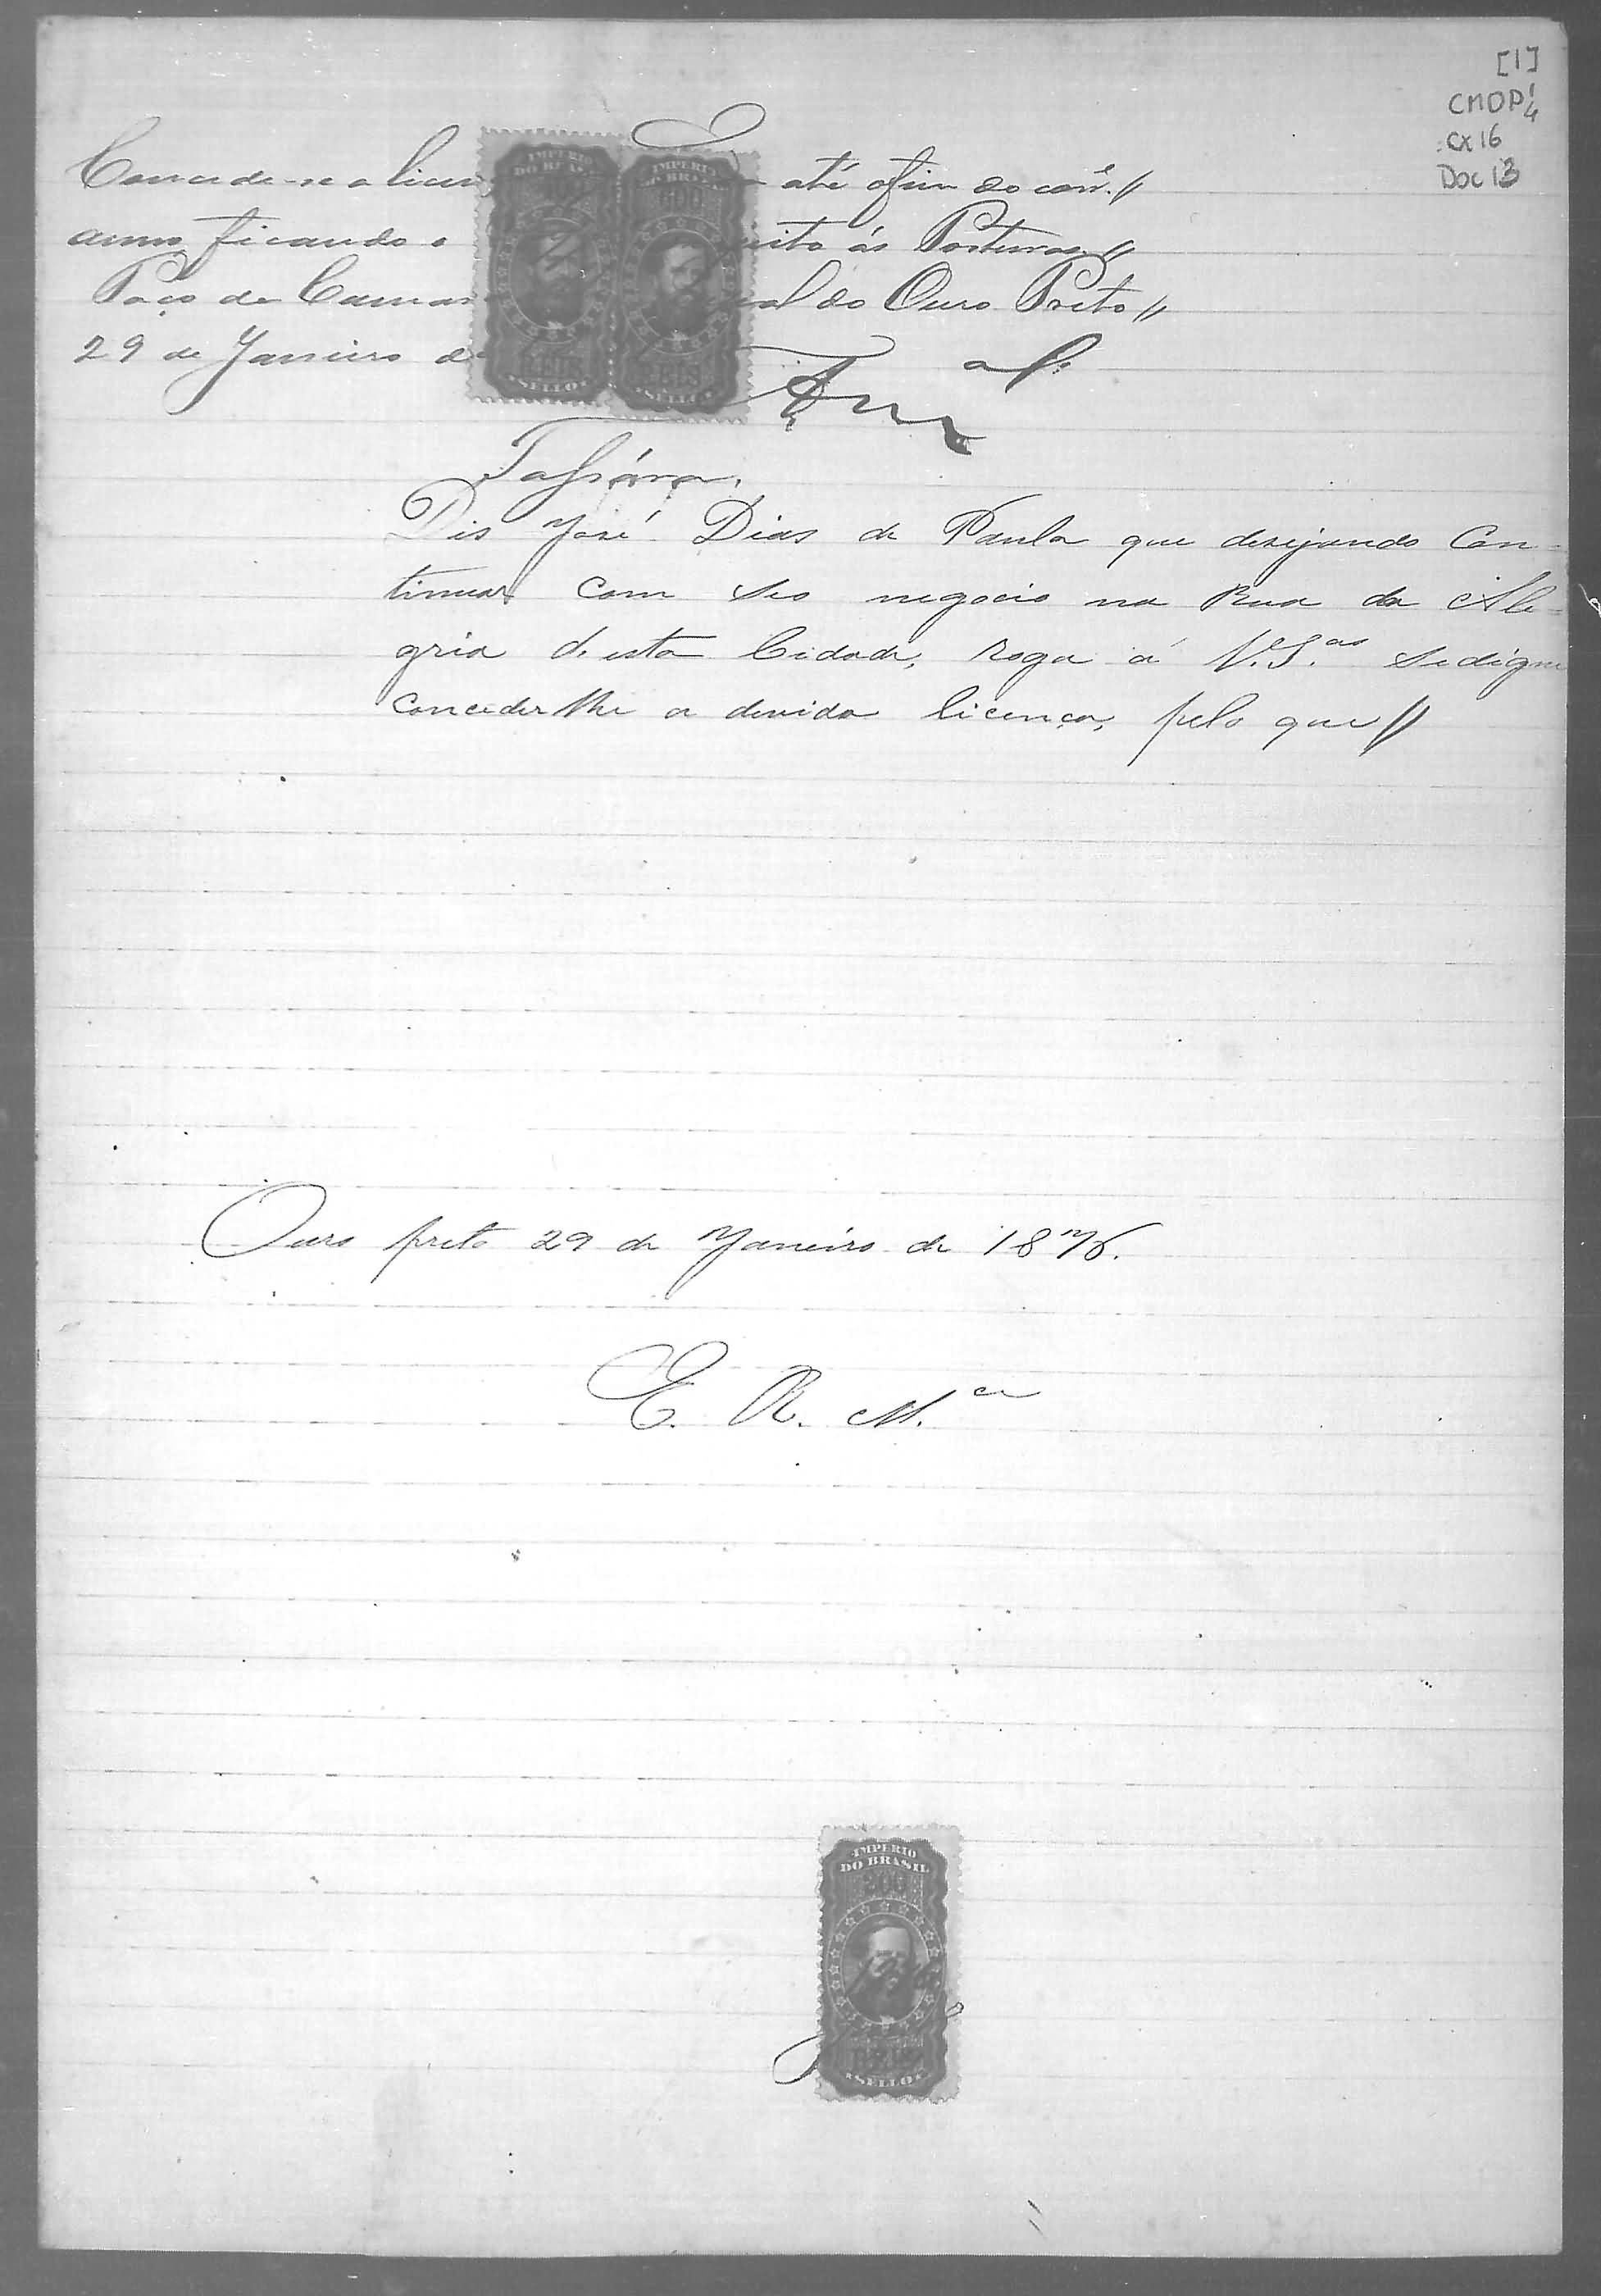 [1]
CMOP 1/4
CX 16
Doc 13
Concede-se a licen até o fim do corr.e //
anno, ficando o eito ás Posturas //
Paço da Camar al do Ouro Preto //
29 de Janeiro d
IMPERIO DO BRASIL
REIS
SELLO
IMPERIO DO BRASIL
REIS
SELLO
Dis José Dias de Paula que desejando Con-
tinuar com seo negocio na Rua da Ale-
gria d'esta Cidade, roga á V.S.as se digne
conceder lhe a devida licença, pelo que //
Ouro preto 29 de Janeiro de 1876.
E. R. M.ce
IMPERIO
DO BRASIL
200
REIS
SELLO